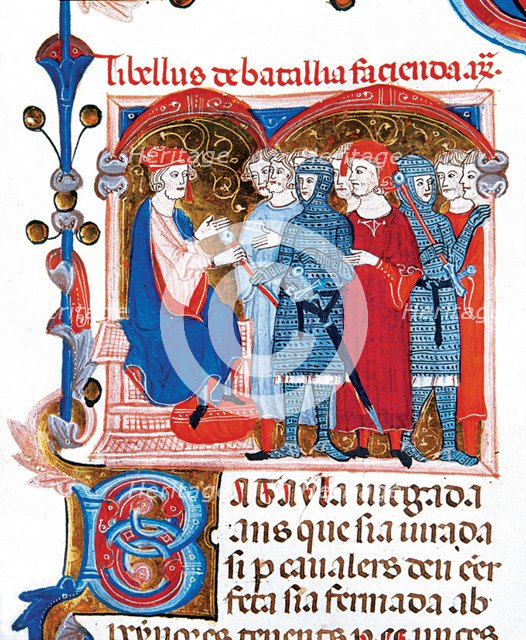 libellus de batallia facienda.
BATALLA iutgada
ans que sia iurada
si p cavalers deu eer
feta sia fermada ab